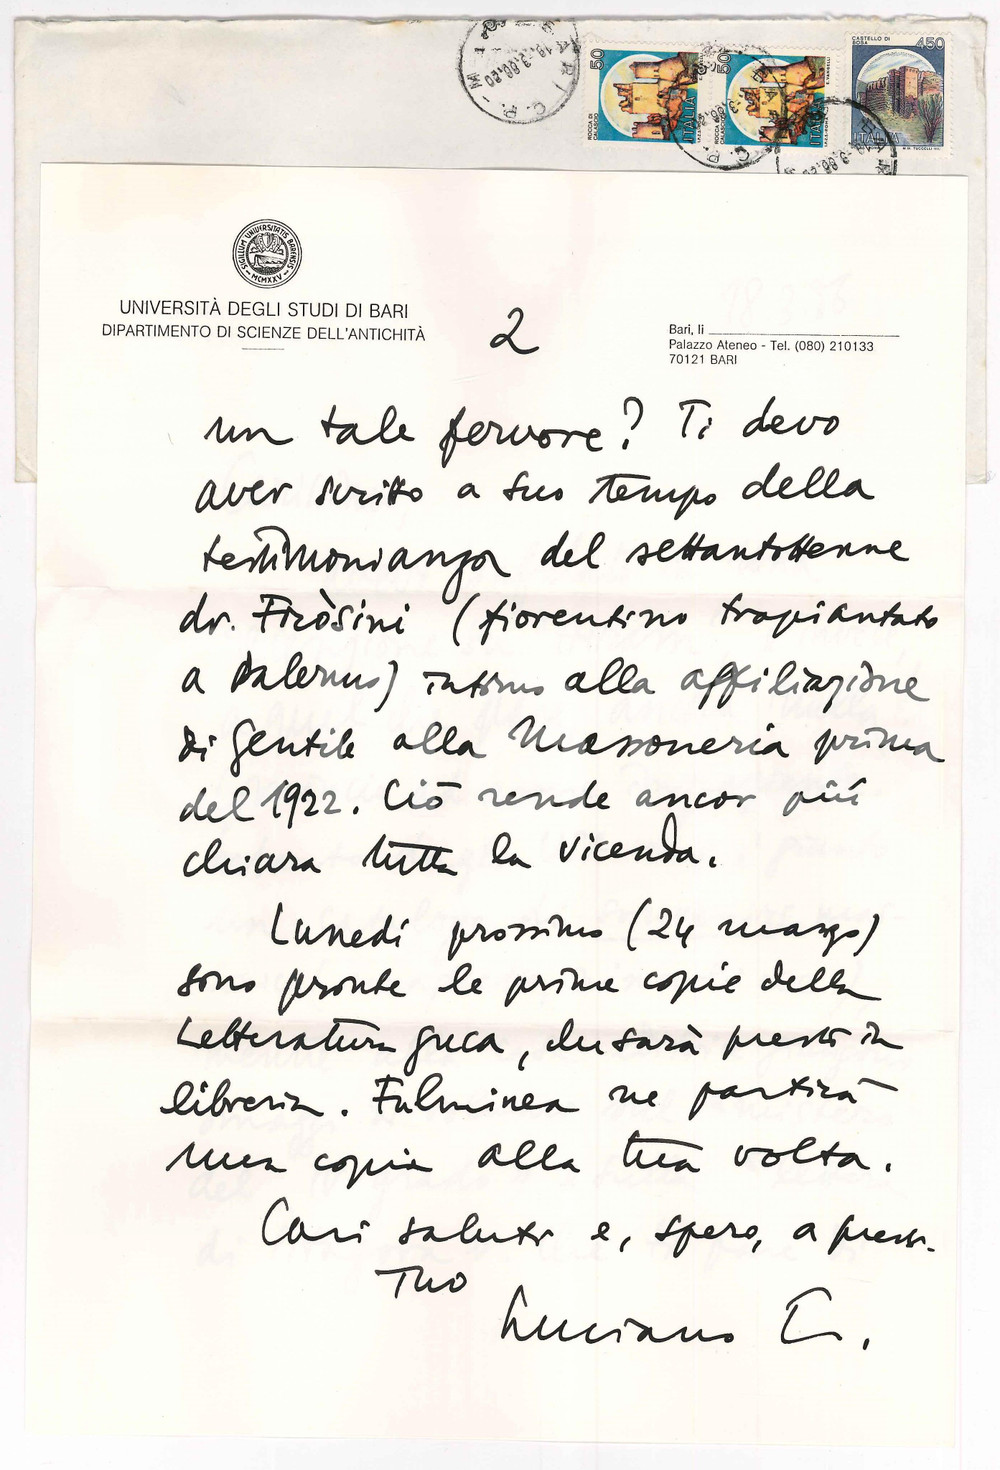 BARI C.P.
50
ROCCA DI CALASCIO
ITALIA
50
ROCCA DI CALASCIO
ITALIA
CASTELLO DI BOSA
450
ITALIA
SIGILLUM UNIVERSITATIS BARENSIS
MCMXXV
UNIVERSITÀ DEGLI STUDI DI BARI
DIPARTIMENTO DI SCIENZE DELL'ANTICHITÀ
2
Bari, li
Palazzo Ateneo - Tel. (080) 210133
70121 BARI
un tale fervore? Ti devo
aver scritto a suo tempo della
testimonianza del settantottenne
dr. Fròsini (fiorentino trapiantato
a Palermo) intorno alla affiliazione
di Gentile alla Massoneria prima
del 1922. Ciò rende ancor più
chiara tutta la vicenda.
Lunedì prossimo (24 marzo)
sono pronte le prime copie della
Letteratura greca, che sarà presto in
libreria. Fulminea ne partirà
una copia alla tua volta.
Cari saluti e, spero, a presto.
Tuo
Luciano C.